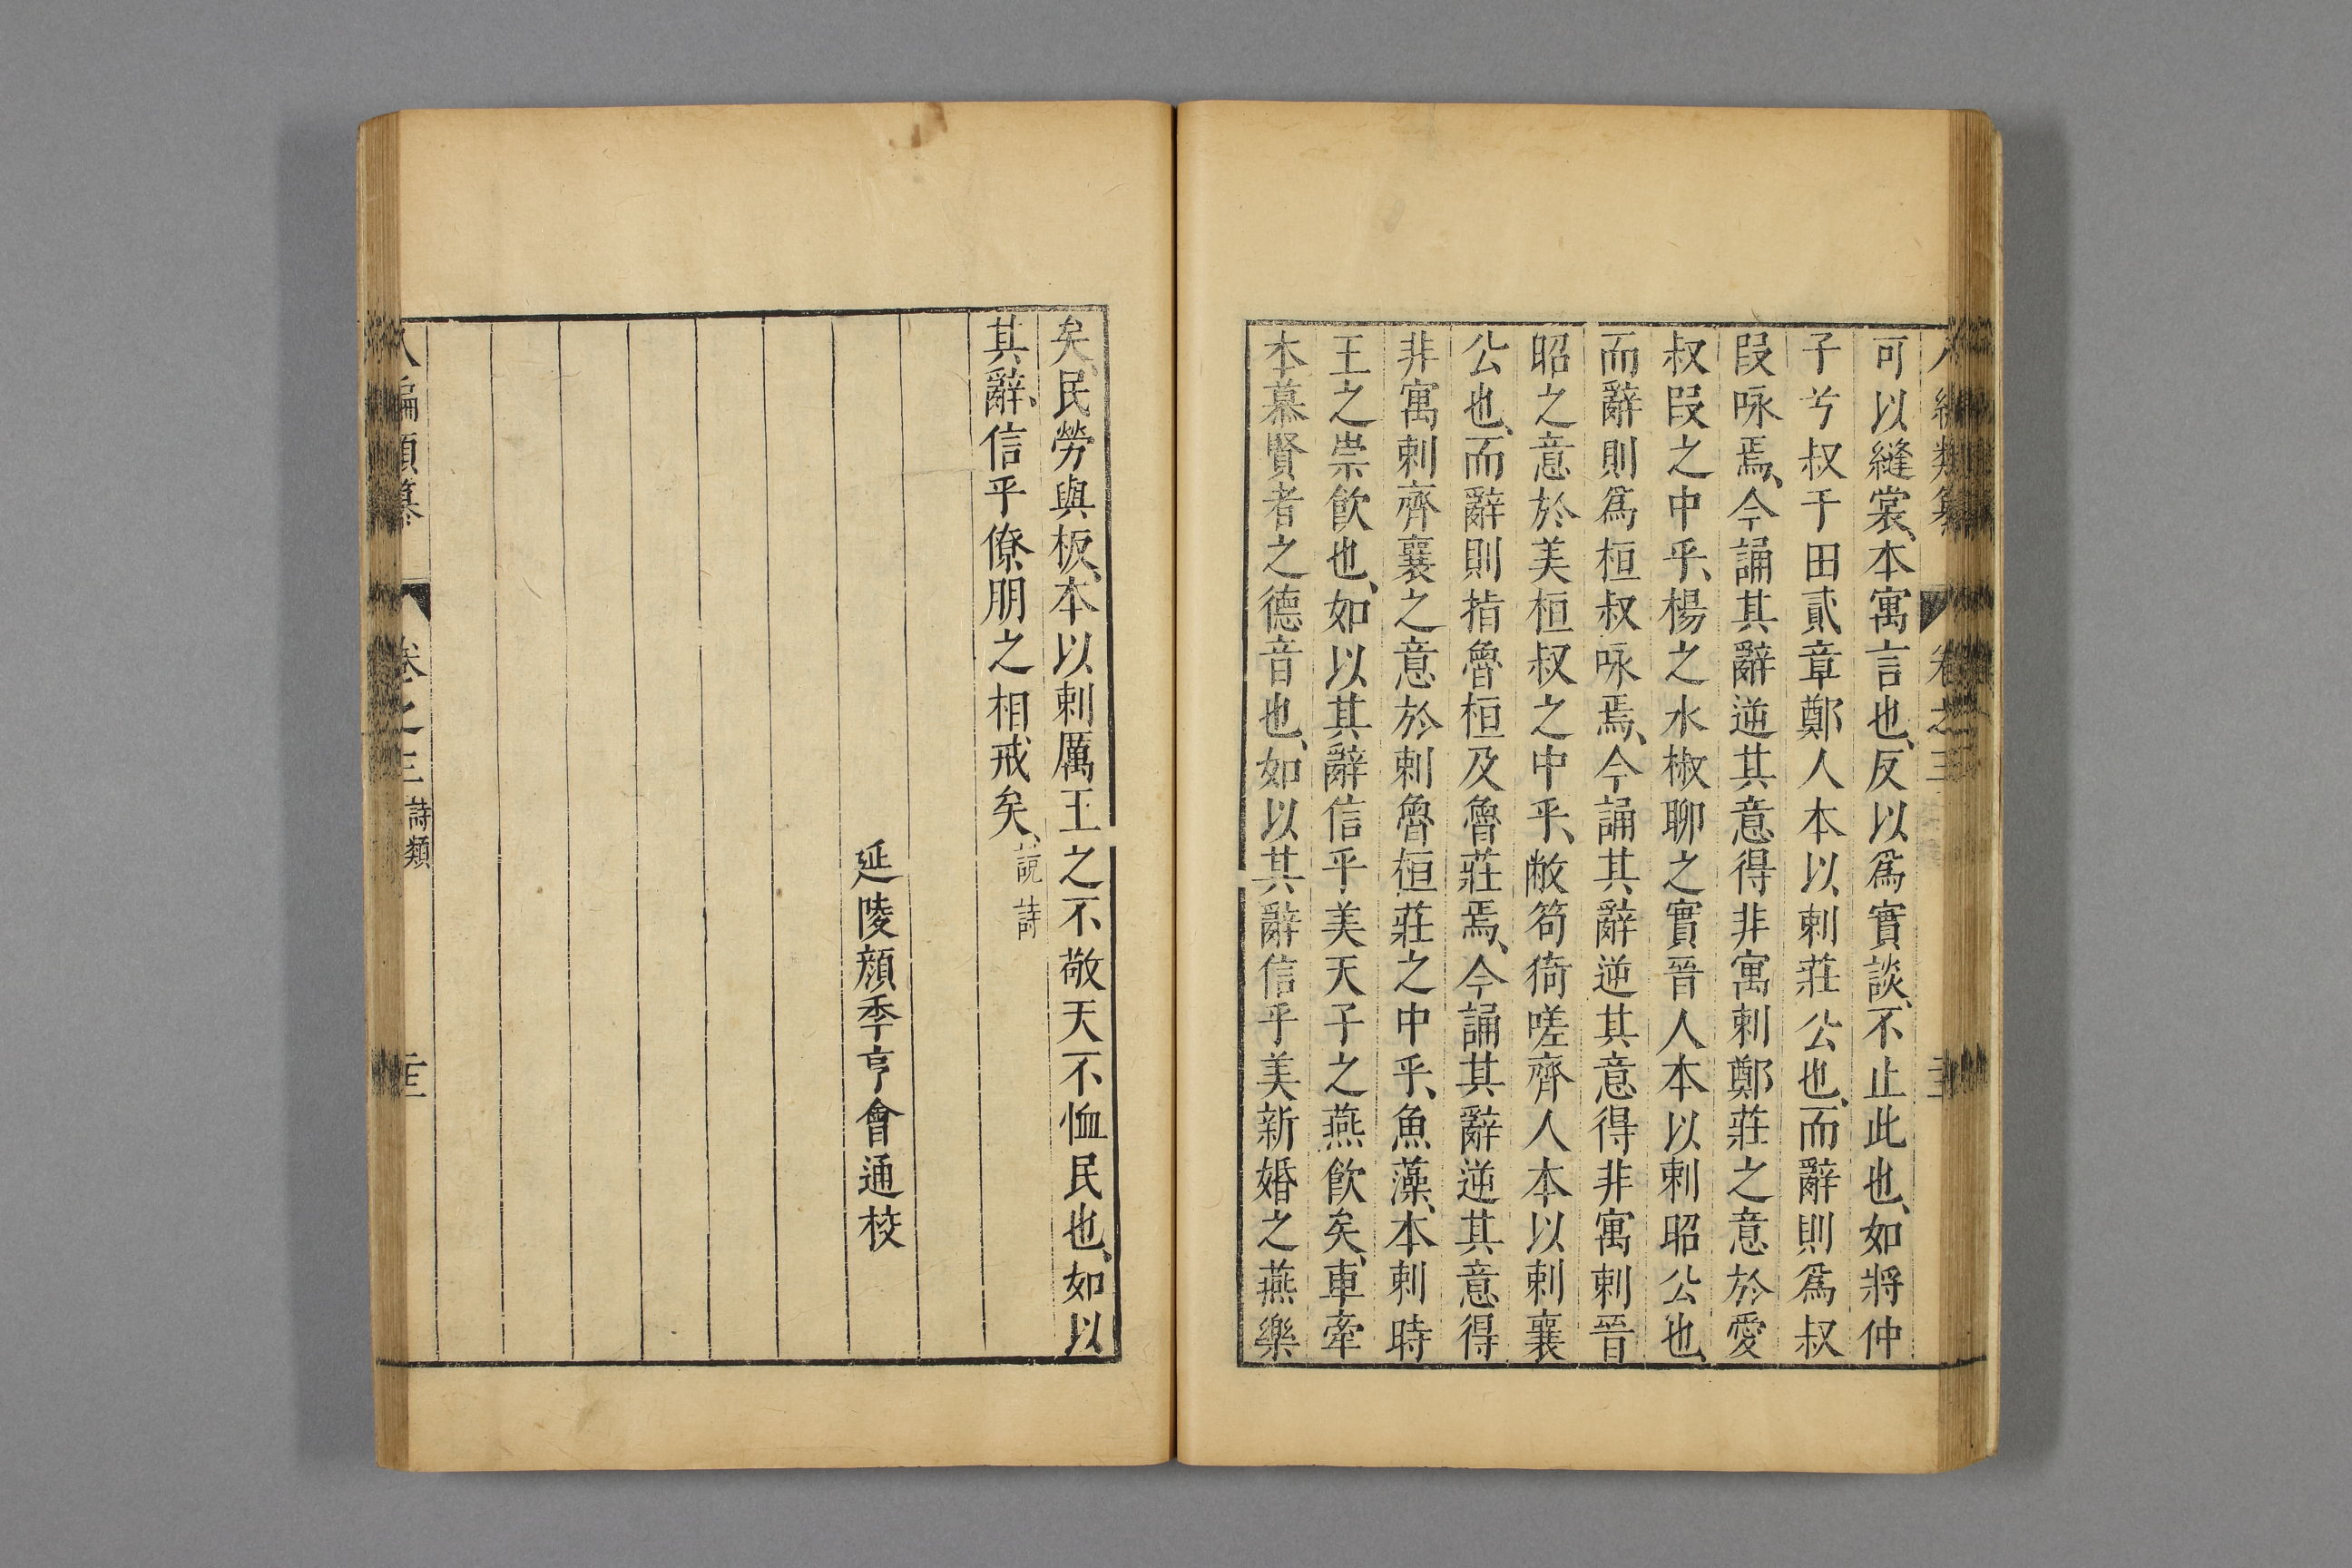 八編類纂 卷之三
可以縫裳、本寓言也、反以爲實談、不止此也、如將仲
子兮叔于田貳章鄭人本以刺莊公也、而辭則爲叔
段咏焉、今誦其辭逆其意得非寓刺鄭莊之意於愛
叔段之中乎、楊之水椒聊之實晉人本以刺昭公也、
而辭則爲桓叔咏焉、今誦其辭逆其意得非寓刺晉
昭之意於美桓叔之中乎、敝笱猗嗟齊人本以刺襄
公也、而辭則指魯桓及魯莊焉、今誦其辭逆其意得
非寓刺齊襄之意於刺魯桓莊之中乎、魚藻、本刺時
王之崇飲也、如以其辭信乎美天子之燕飲矣、車舝
本慕賢者之德音也、如以其辭信乎美新婚之燕樂
矣、民勞與板、本以刺厲王之不敬天不恤民也、如以
其辭、信乎僚朋之相戒矣、說詩
延陵顏季亨會通校
八編類纂 卷之三 詩類